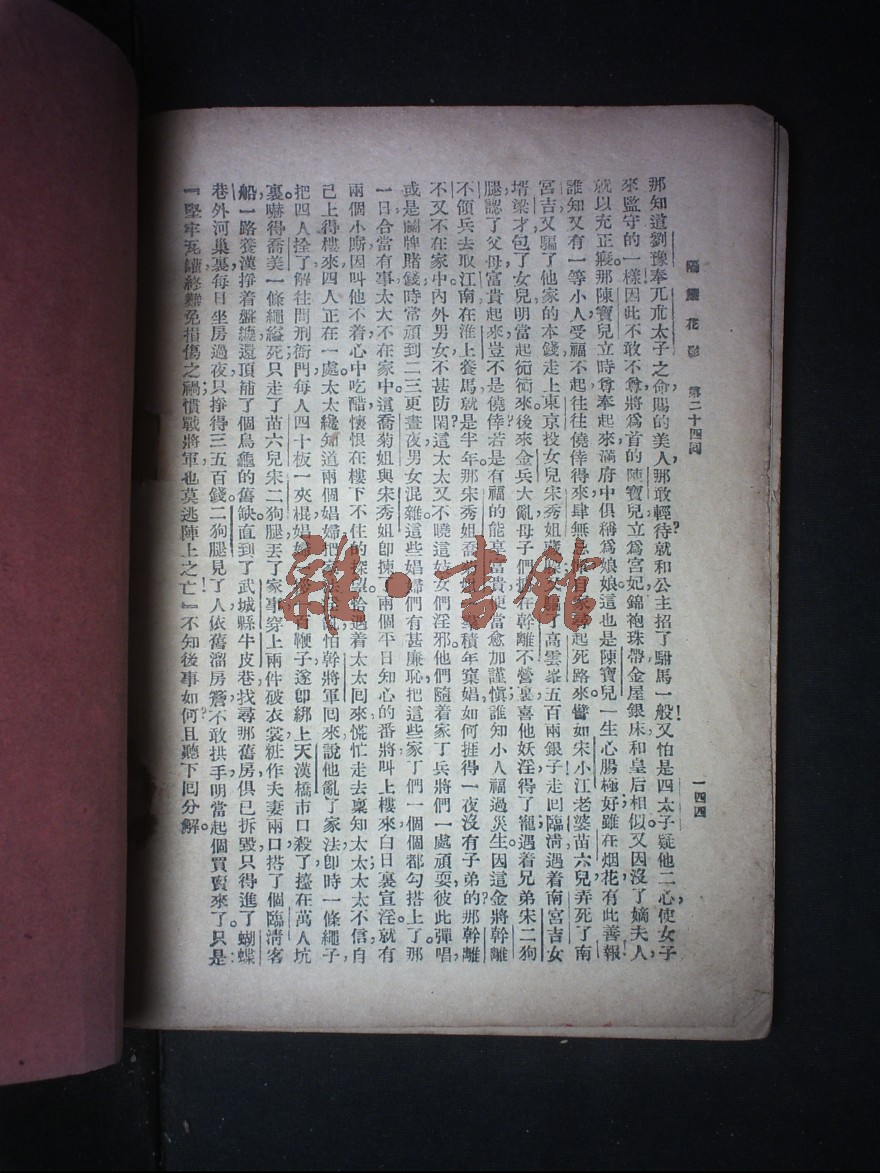 隔簾花影 第二十四回 一四四
那知道劉豫奉兀朮太子之命賜的美人那敢輕待?就和公主招了駙馬一般!又怕是四太子疑他二心,使女子
來監守的一樣因此不敢不尊將爲首的陳寶兒立爲宮妃錦袍珠帶金屋銀床和皇后相似又因沒了嫡夫人,
就以充正寢。那陳寶兒立時尊奉起來滿府中俱稱爲娘娘這也是陳寶兒一生心腸極好雖在烟花有此善報!
誰知又有一等小人受福不起往往僥倖得來肆無忌 自家尋起死路來譬如宋小江老婆苗六兒弄死了南
宮吉又騙了他家的本錢走上東京投女兒宋秀姐 了高雲峯五百兩銀子走回臨清遇着南宮吉女
壻梁才包了女兒明當起衏衏來後來金兵大亂母子們 在幹離不營裏喜他妖淫得了寵遇着兄弟宋二狗
腿認了父母富貴起來豈不是僥倖?若是有福的能享富貴便當愈加謹愼誰知小人福過災生因這金將幹離
不領兵去取江南在淮上養馬就是半年那宋秀姐喬 積年窠娼如何捱得一夜沒有子弟的?那幹離
不又不在家中內外男女不甚防閑這太太又不曉這妓女們淫邪他們隨着家丁兵將們一處頑耍彼此彈唱,
或是鬭牌賭錢時常頑到二三更晝夜男女混雜這些娼婦們有甚廉恥把這些家丁們一個個都勾搭上了。那
一日合當有事太太不在家中這喬菊姐與宋秀姐卽揀 兩個平日知心的番將叫上樓來白日裏宣淫就有
兩個小廝因叫他不着心中吃醋懷恨在樓下不住的探 恰遇着太太回來慌忙走去稟知太太太太不信自
己上得樓來四人正在一處太太纔知道兩個娼婦把 怕幹將軍回來說他亂了家法卽時一條繩子
把四人拴了解往問刑衙門每人四十板一夾棍娼婦 百鞭子遂卽綁上天漢橋市口殺了擡在萬人坑
裏嚇得喬美一條繩縊死只走了苗六兒宋二狗腿丟了家事穿上兩件破衣裳粧作夫妻兩口搭了個臨淸客
船一路養漢掙着盤纏還頂補了個烏龜的舊缺直到了武城縣牛皮巷找尋那舊房俱已拆毀只得進了蝴蝶
巷外河巢裏每日坐房過夜只掙得三五百錢二狗腿見了人依舊溜房簷不敢拱手明當起個買賣來了只是:
『堅牢瓦罐終難免損傷之禍慣戰將軍也莫逃陣上之亡!』不知後事如何?且聽下回分解。
雜·書館